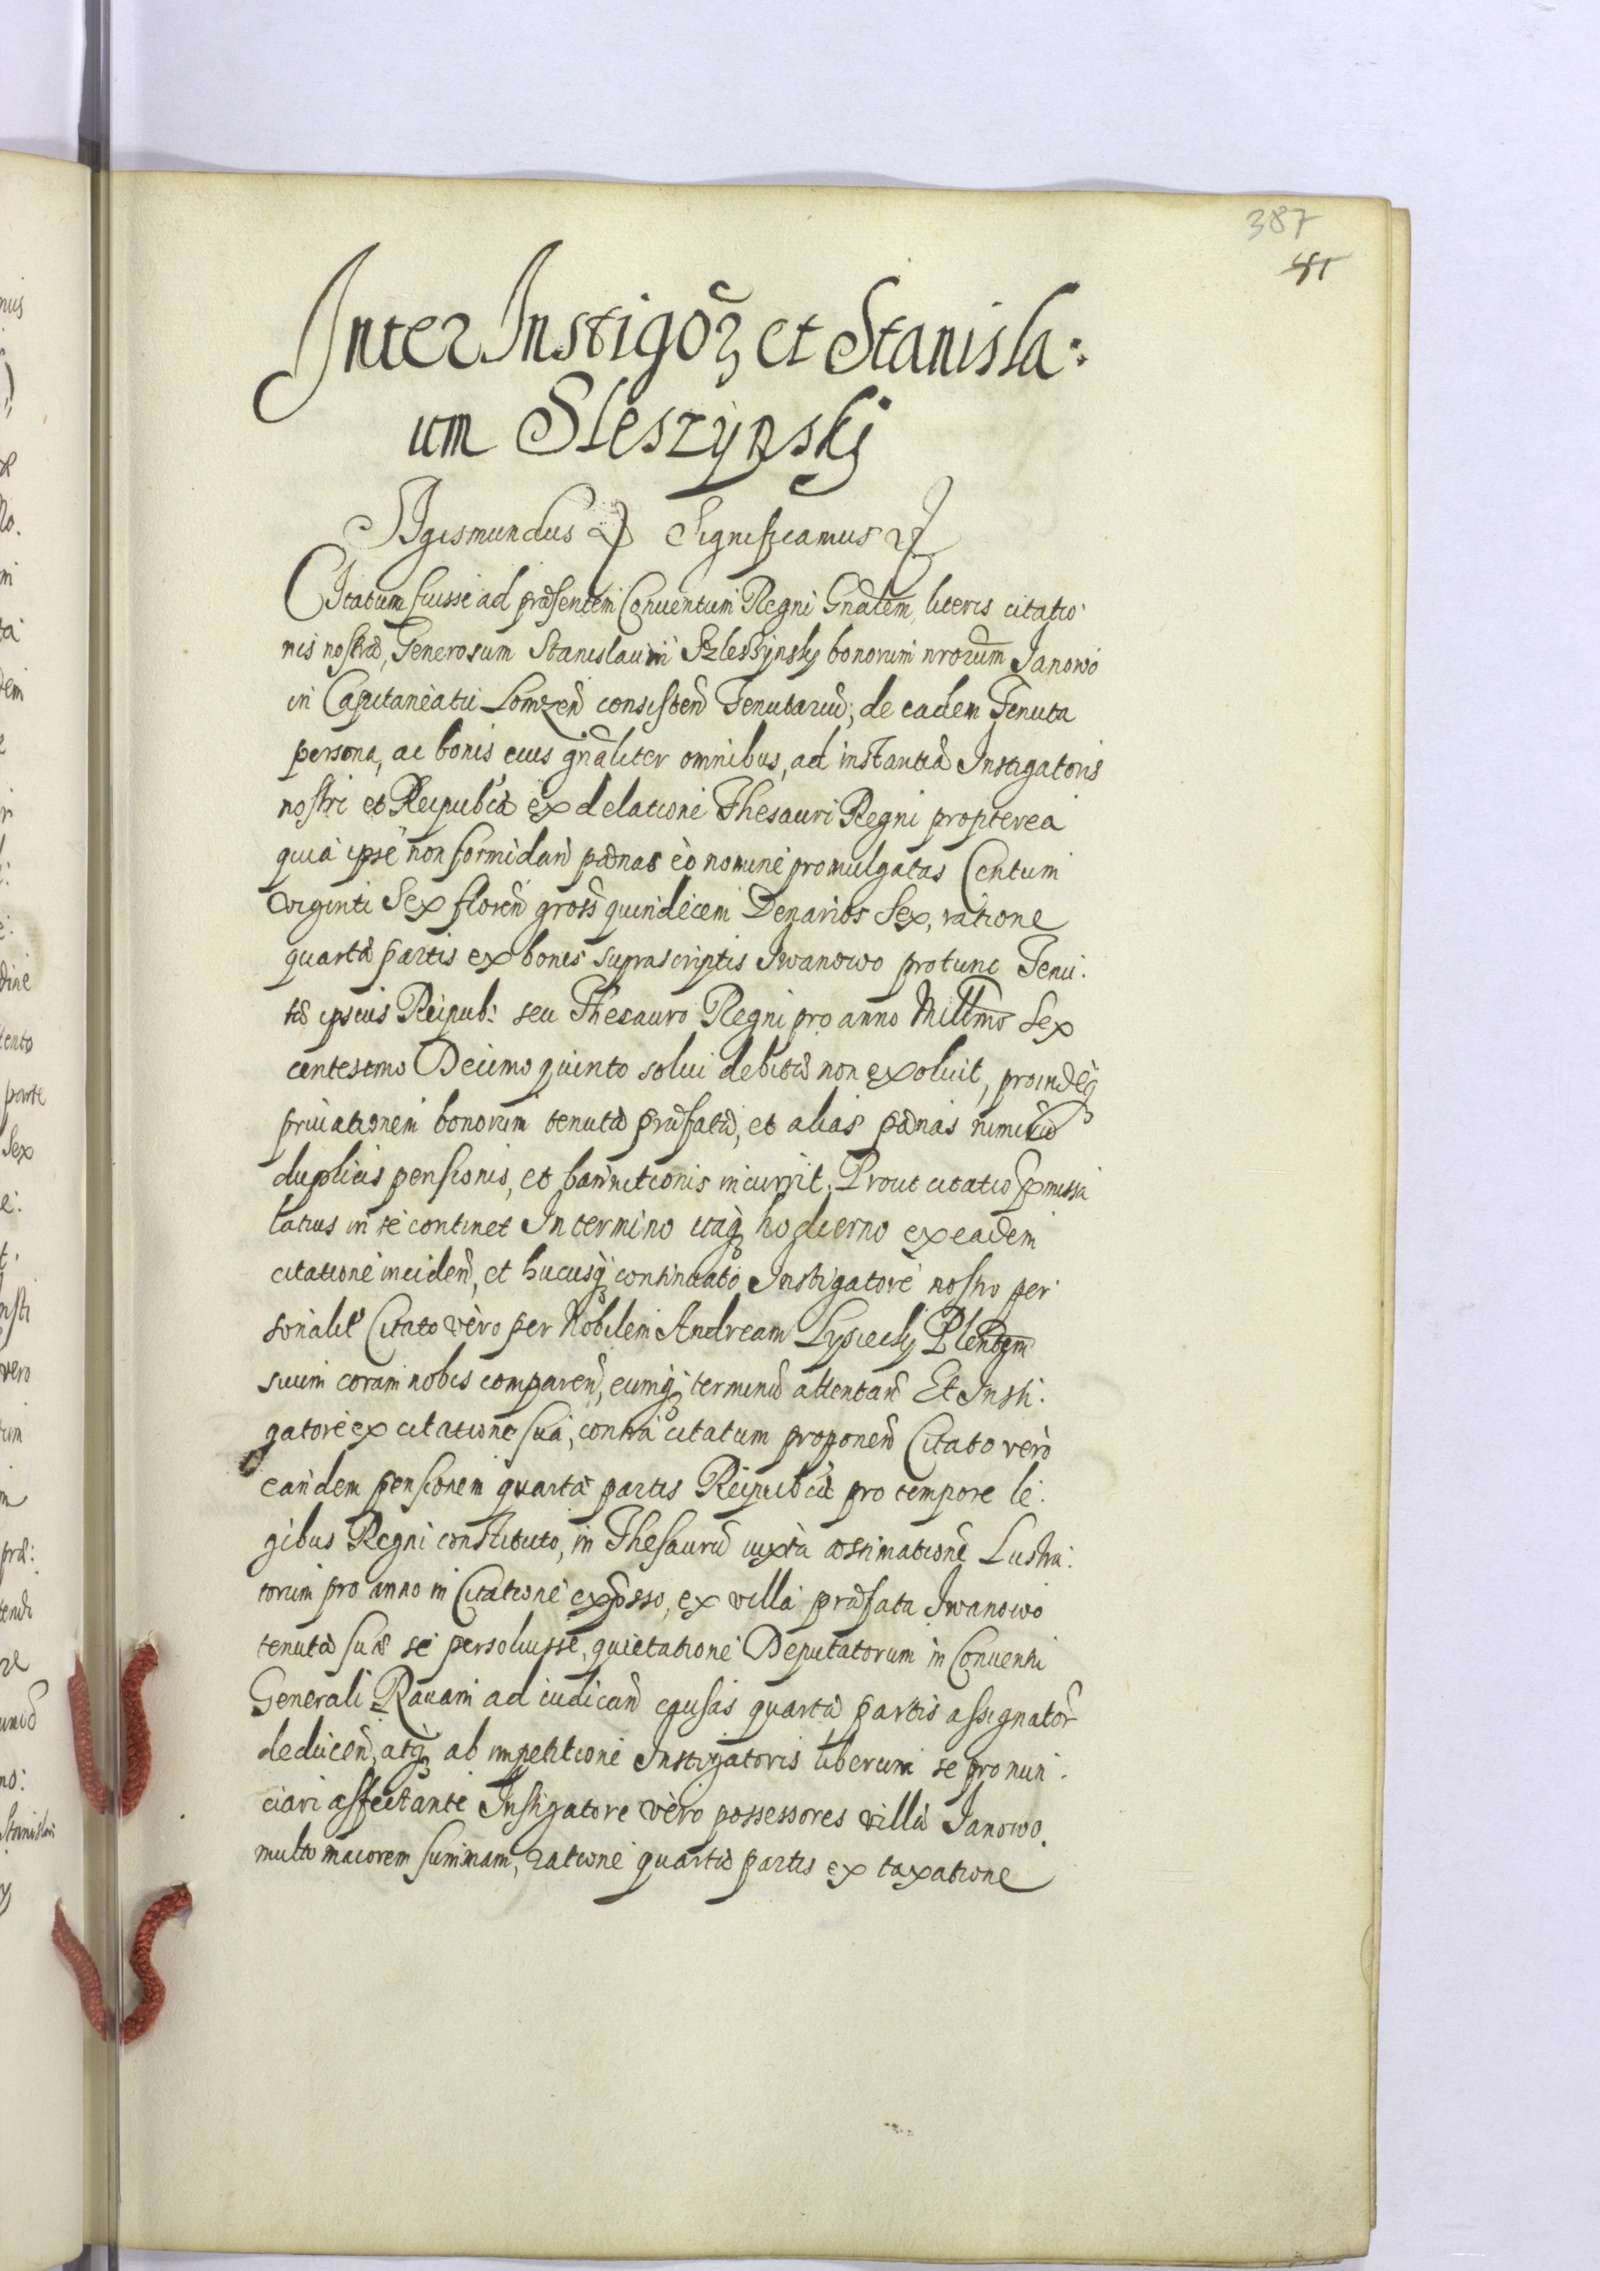 387
41
Inter Instigõꝝ et Stanisla:
um Sleszÿnskj
Sigismundus Significamus
Citatum fuisse ad præsentem Conuentum Regni Gnãlem, literis citatio
nis nostræ, Generosum Stanislaum Szleszÿnskÿ bonorum nrorum Janowo
in Capitaneatu Lomzeñ consisteñ Tenutariũ, de eadem Tenuta
persona, ac bonis eius gñaliter omnibus, ad instantiã Instigatoris
nostri et Reipublæ ex delatione Thesauri Regni propterea
quia ipse non formidañ pænas eo nomine promulgatas Centum
viginti Sex floreñ gross̃ quindecem Denarios Sex, ratione
quartæ partis ex bonis suprascriptis Iwanowo protunc Tenu:
tæ ipsius Reipub: seu Thesauro Regni pro anno Millmo Sex
centesimo Decimo quinto solui debitæ non exoluit, proindeq̃
priuationem bonorum tenutæ præfatæ, et alias pænas nimirũ
duplicis pensionis, et bannitionis incurrit. Prout citatio præmissa
latius in se continet In termino itaq̃ hodierno ex eadem
citatione incideñ, et hucusq̃ continuato Instigatore nostro per
sonalit̃ Citato vero per Nobilem Andream Lysieckÿ Plentem
suum coram nobis compareñ, eumq̃ terminũ attentañ Et Insti:
gatore ex citatione sua, contra citatum proponeñ Citato vero
eandem pensionem quartæ partis Reipublæ pro tempore le:
gibus Regni constituto, in Thesaurũ iuxta æstimationẽ Lustra:
torum pro anno in Citatione expresso, ex villa præfata Iwanowo
tenutæ suæ se persoluisse, quietatione Deputatorum in Conuentu
Generali Rauam ad iudicañ causas quartæ partis assignator̃
deduceñ, atq̃ ab impetitione Instigatoris liberum se pronun:
ciari affectante Instigatore vero possessores villæ Janowo.
multo maiorem summam, ratione quartæ partis ex taxatione